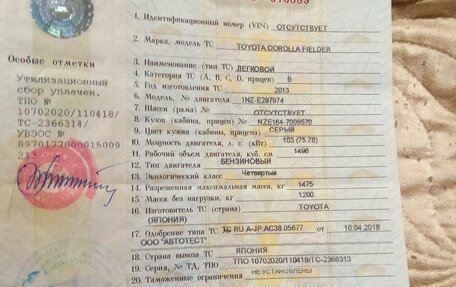 1. Идентификационный номер (VIN) ОТСУТСТВУЕТ
2. Марка, модель ТС TOYOTA COROLLA FIELDER
3. Наименование (тип ТС) ЛЕГКОВОЙ
4. Категория ТС (А, В, С, D, прицеп) В
5. Год изготовления ТС 2013
6. Модель, № двигателя 1NZ-E297974
7. Шасси (рама) № ОТСУТСТВУЕТ
8. Кузов (кабина, прицеп) № NZE164-7009570
9. Цвет кузова (кабины, прицепа) СЕРЫЙ
10. Мощность двигателя, л. с. (кВт) 103 (75.76)
11. Рабочий объем двигателя, куб. см 1496
12. Тип двигателя БЕНЗИНОВЫЙ
13. Экологический класс Четвертый
14. Разрешенная максимальная масса, кг 1475
15. Масса без нагрузки, кг 1200
16. Изготовитель ТС (страна) TOYOTA
(ЯПОНИЯ)
17. Одобрение типа ТС № RU А-JP.АС38.05677 от 10.04.2018
ООО "АВТОТЕСТ"
18. Страна вывоза ТС ЯПОНИЯ
19. Серия, № ТД, ТПО ТПО 10702020/110418/ТС-2366313
20. Таможенные ограничения НЕ УСТАНОВЛЕНЫ
Особые отметки
Утилизационный
сбор уплачен.
ТПО №
10702020/110418/
ТС-2366314/
УВЭОС №
8970177000015009
213